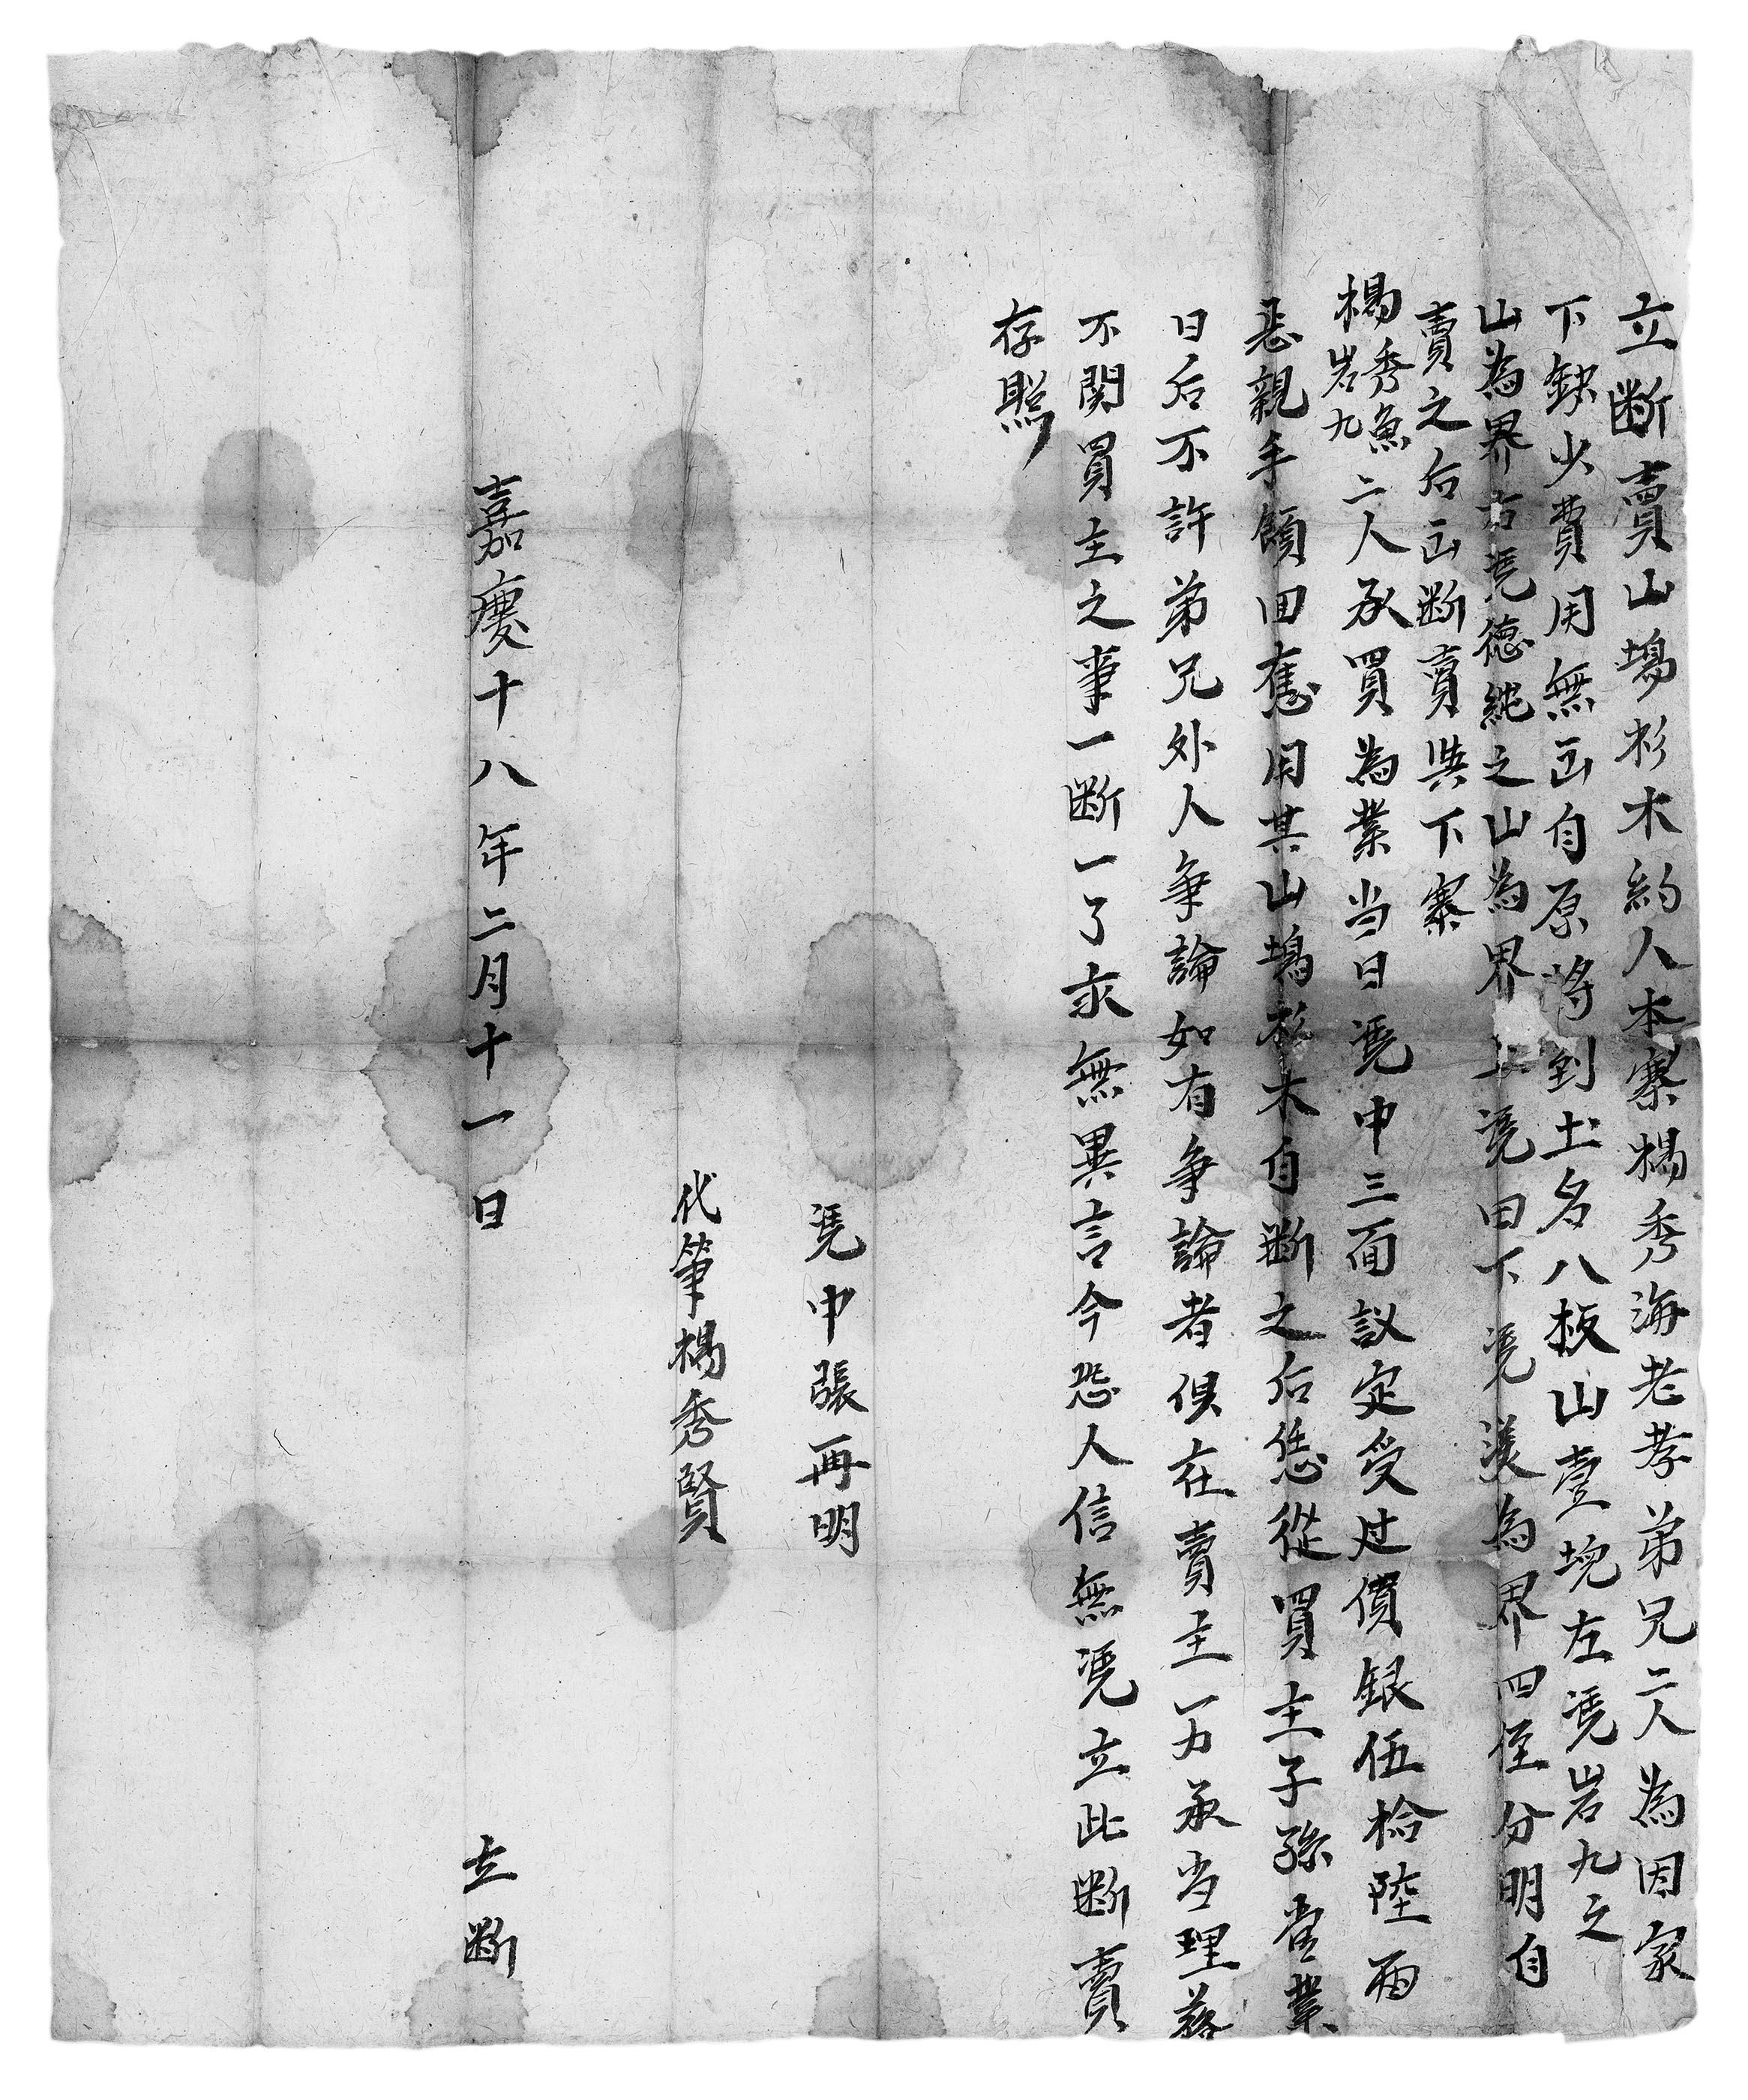 立断賣山塲杉木約人本寨楊秀海老孝弟兄二人為因家
下缺少費用無出自原将到土名八板山壹塊左凴岩九之
山為界右凴德純之山為界上凴田下凴溪為界四至分明自
賣之后出断賣與下寨
楊秀魚岩九二人承買為業当日凴中三面议定受过價銀伍拾陸両
親手領回應用其山塲杉木自断之后恁從買主子孫管業
日后不許弟兄外人争論如有争論者俱在賣主一力承当理落
不関買主之事一断一了永無異言今恐人信無凴立此断賣
存照
凴中張再明
代筆楊秀賢
嘉慶十八年二月十一日 立断